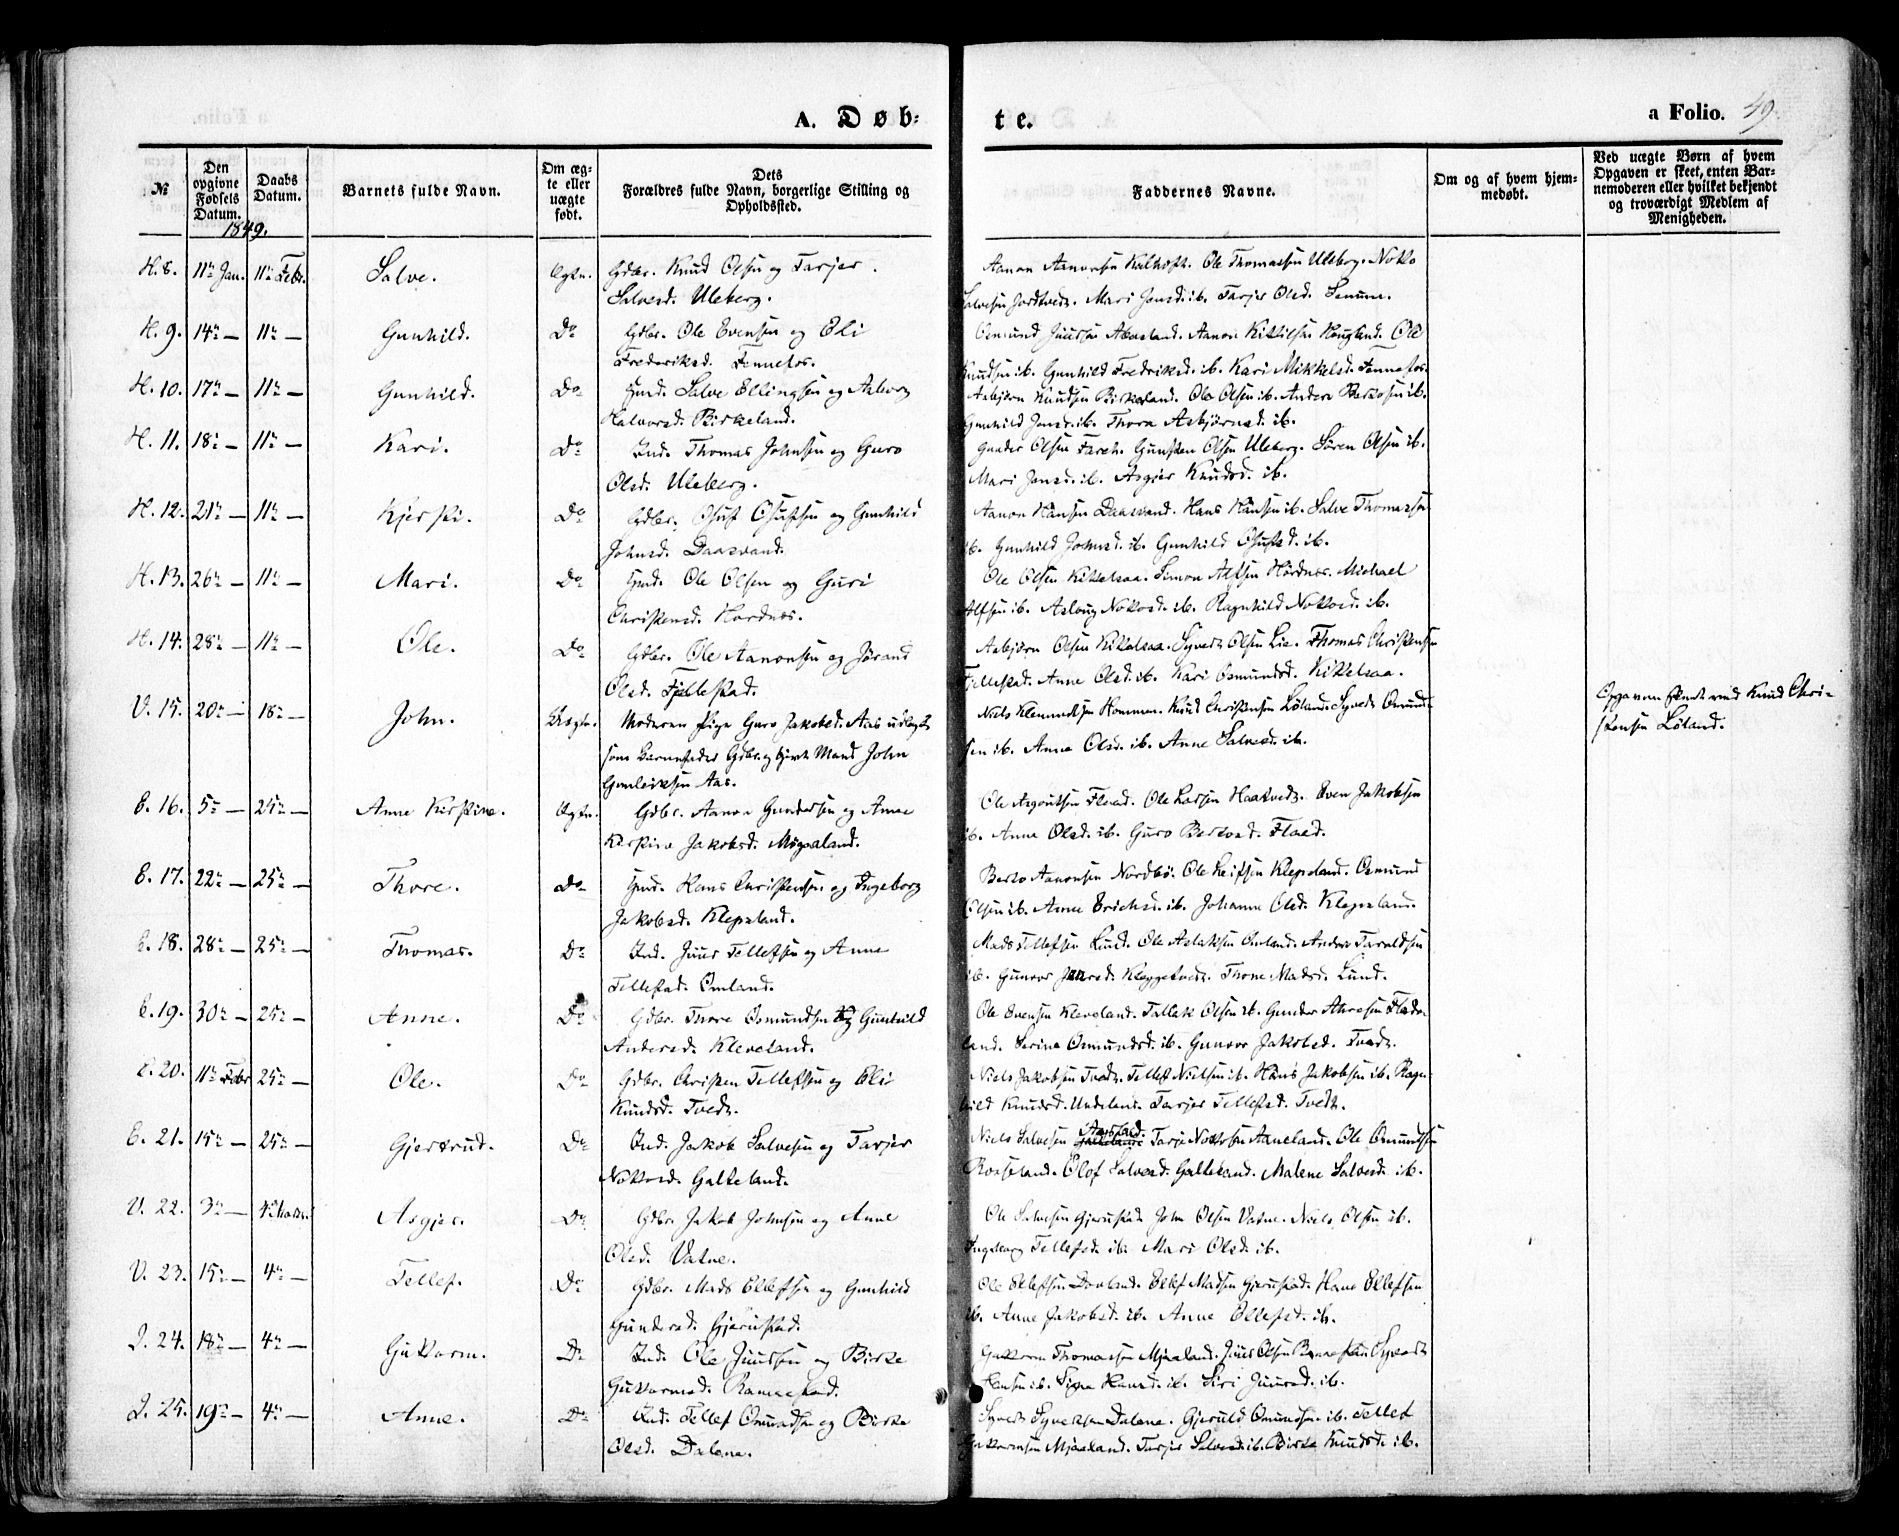 A. Døb=
te.
a Folio. 49.
№
Den opgivne Fødsels Datum.
Daabs Datum.
Barnets fulde Navn.
Om ægte eller uægte født.
Dets Forældres fulde Navn, borgerlige Stilling og Opholdssted.
Faddernes Navne.
Om og af hvem hjemmedøbt.
Ved uægte Børn af hvem Opgaven er skeet, enten Barnemoderen eller hvilket bekjendt og troværdigt Medlem af Menigheden.
1849.
H. 8. 11te Jan. 11te Febr. Salve. Ægte. Gdbr. Knud Olsen og Tarjer
Salvesd. Uleberg.
Aanon Aanonsen Ole Thomassen Uleberg. Notto
Salvesen Mari Jensd. ib. Tarjer Olsd.
H. 9. 14de — 11te — Gunhild. Do Gdbr. Ole Evensen og Eli
Frederiksd. Fennefos.
Osmund Juusen Aanon Kittilsen Haugland. Ole
Knudsen ib. Gunhild Fredriksd. ib. Kari Mikkelsd. Fennefos.
H. 10. 17de — 11te — Gunhild. Do Huusmd. Salve Ellingsen og Aslaug
Halvorsd. Birkeland.
Asbjörn Knudsen Birkeland. Ole Olsen ib. Anders ib.
Gunhild Jensd. ib. Thora Asbjörnsd. ib.
H. 11. 18de — 11te — Kari. Do Ind. Thomas Johnsen og Guro
Olsd. Uleberg.
Gunder Olsen Gunsten Olsen Uleberg. Sören Olsen ib.
Mari Jensd. ib. Asgjer Knudsd. ib.
H. 12. 21de — 11te — Kjersti. Do Gdbr. Osuf Osufsen og Gunhild
Johnsd. Daasvand.
Aanon Hansen Daasvand. Hans Hansen ib. Salve Thomassen
ib. Gunhild Johnsd. ib. Gunhild Osufsd. ib.
H. 13. 26de — 11te — Mari. Do Huusmd. Ole Olsen og Guri
Christensd. Hordnes.
Ole Olsen Kittelsaa. Simon Alfsen Hordnes. Michael
Alfsen ib. Aslaug Nottosd. ib. Ragnhild Nottosd. ib.
H. 14. 28de — 11te — Ole. Do Gdbr. Ole Aanonsen og Jörand
Olsd. Fjellestad.
Asbjörn Olsen Kittelsaa. Syvert Olsen Lie. Thomas Christensen
Fjellestad. Anne Olsd. ib. Kari Osmundsd. Kittelsaa.
V. 15. 20de — 18de — John. Uægte. Moderen Pige Guro Jakobsd. Aas udlagt
som Barnefader Gdbr. og Givt Mand John
Gunleiksen Aas.
Niels Klemmetsen Hommen. Knud Christensen Löland. Syvert Osmundsen
ib. Anne Olsd. ib. Anne Salvesd. ib.
Opgaven skeet ved Knud Chri-
stensen Löland.
E. 16. 5te — 25de — Anne Kirstine. Ægte. Gdbr. Aanon Gundersen og Anne
Kirstine Jakobsd.
Ole Flaad. Ole Larsen Haatvedt. Even Jakobsen
ib. Anne Olsd. ib. Guro Flaad.
E. 17. 22de — 25de — Thore. Do Huusmd. Hans Christensen og Ingeborg
Jakobsd. Klepsland.
Aanonsen Nordbö. Ole Leifsen Klepsland. Osmund
Olsen ib. Anne Erichsd. ib. Johanne Olsd. Klepsland.
E. 18. 28de — 25de — Thomas. Do Ind. Juus Tellefsen og Anne
Tellefsd. Omland.
Mads Tellefsen Lund. Ole Aslaksen Omland. Anders Taraldsen
ib. Gunvor Thone Madsd. Lund.
E. 19. 30te — 25de — Anne. Do Gdbr. Thore Osmundsen og Gunhild
Andersd. Kleveland.
Ole Evensen Kleveland. Tallak Olsen ib. Gunder
Serine Osmundsd. ib. Gunvor Jakobsd. Tvedt.
E. 20. 11te Febr. 25de — Ole. Do Gdbr. Christen Tellefsen og Eli
Knudsd. Tvedt.
Niels Jakobsen Tvedt. Tellef Nielsen ib. Hans Jakobsen ib. Ragn-
hild Knudsd. Tarjer Tellefsd. Tvedt.
E. 21. 15de — 25de — Gjertrud. Do Ind. Jakob Salvesen og Tarjer
Nottosd. Galteland.
Niels Salvesen Tarje Nottosen Aaneland. Ole Osmundsen
Olof Salvesd. Galteland. Malene Salvesd. ib.
V. 22. 3de — 4de Marts. Asgjer. Do Gdbr. Jakob Johnsen og Anne
Olsd. Vatne.
Ole Salvesen Gjerustad. John Olsen Vatne. Niels Olsen ib.
Ingeborg Tellefsd. ib. Mari Olsd. ib.
V. 23. 15de — 4de — Tellef. Do Gdbr. Mads Ellefsen og Gunhild
Gundersd. Gjerustad.
Ole Ellefsen Ellef Madsen Gjerustad. Hans Ellefsen
ib. Anne Jakobsd. ib. Anne Ellefsd. ib.
I. 24. 18de — 4de — Guttorm. Do Ind. Ole Juusen og Birte
Guttormsd. Rannestad.
Guttorm Thomassen Mjaaland. Juus Olsen Rannestad. Syvert
Hansen ib. Signe Hansd. ib. Siri Juusd. ib.
I. 25. 19de — 4de — Anne. Do Ind. Tellef Osmundsen og Birte
Olsd. Dalene.
Syvert Syvertsen Dalene. Gjeruld Osmundsen ib. Tellef
Guttormsen Mjaaland. Tarjer Salvesd. ib. Birte Knudsd. ib.